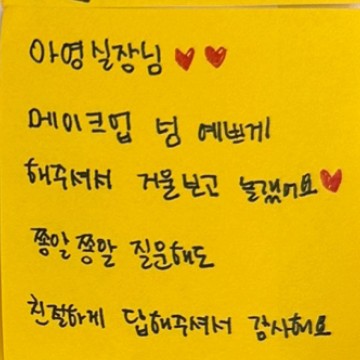 아영실장님 ♥♥
메이크업 넝 예쁘게
해주셔서 거울보고 놀랬어요♥
쫑알쫑알 질문해도
친절하게 답해주셔서 감사해요